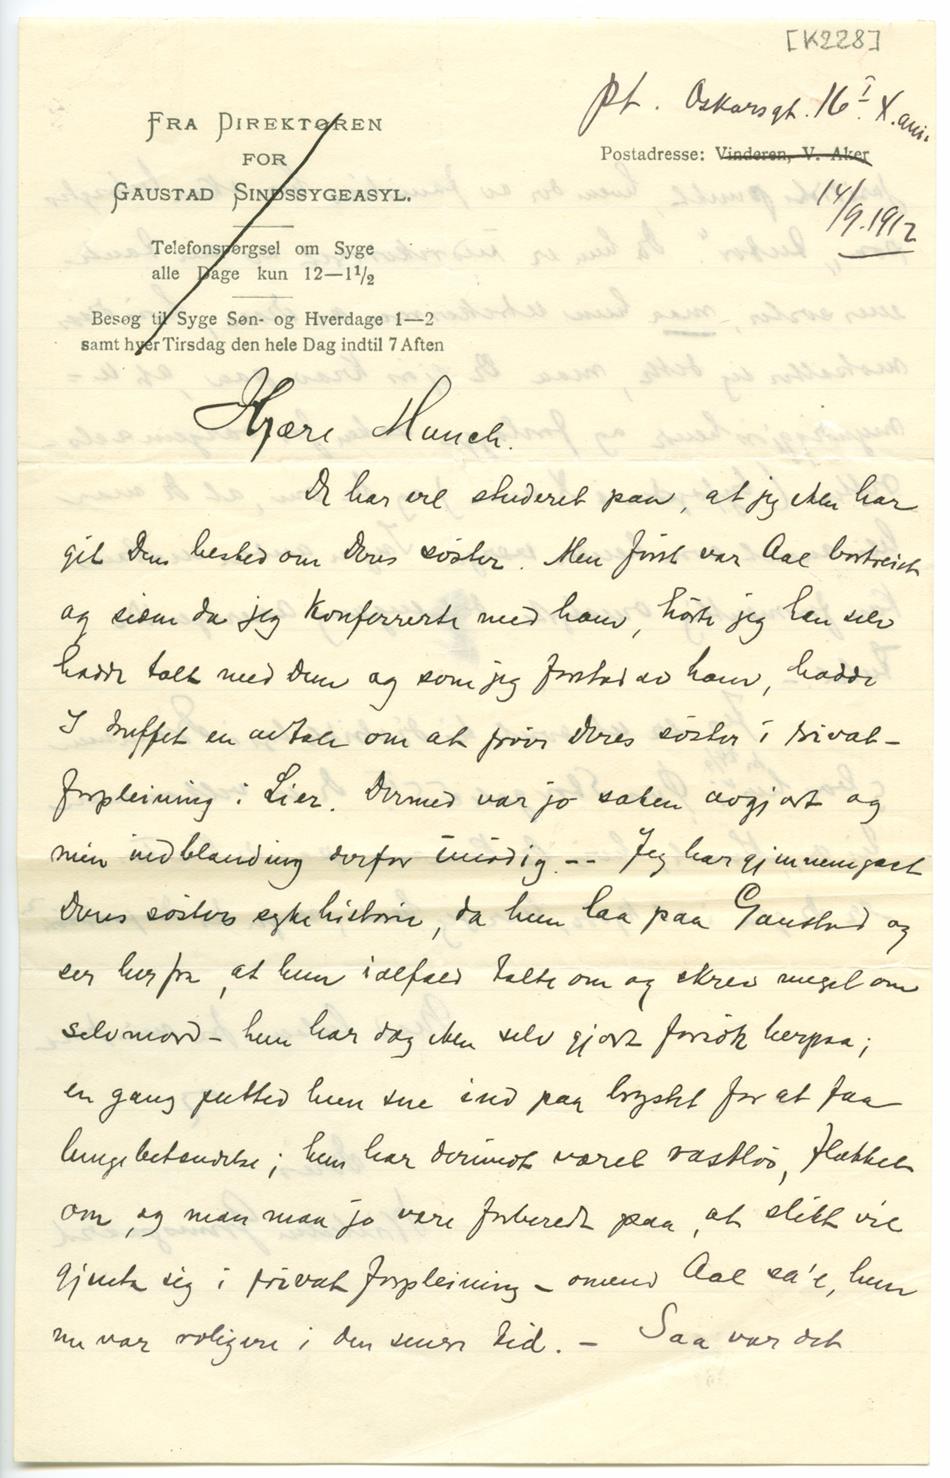 [K228]
pt. Oskarsgt. 16 I X. ani.
FRA DIREKTØREN
FOR
GAUSTAD SINDSSYGEASYL.
Postadresse: Vinderen, V. Aker
14/9.1912
Telefonspørgsel om Syge
alle Dage kun 12—1½
Besøg til Syge Søn- og Hverdage 1—2
samt hver Tirsdag den hele Dag indtil 7 Aften
Kjære Munch.
De har vel studeret paa, at jeg ikke har
git Dem besked om Deres søster. Men først var Aal bortreist
og siden da jeg konfererte med ham, hørte jeg han selv
hadde talt med Dem og som jeg forstod av ham, hadde
I truffet en avtale om at prøve Deres søster i privat-
forpleining i Lier. Dermed var jo saken avgjort og
min indblanding derfor unødig. -- Jeg har gjennemgaat
Deres søsters sykehistorie, da hun laa paa Gaustad og
ser herfra, at hun ialfald talte om og skrev meget om
selvmord - hun har dog ikke selv gjort forsøk herpaa;
en gang putted hun sne ind paa brystet for at faa
lungebetændelse; hun har derimot været rastløs, flakket
om, og man maa jo være forberedt paa, at slikt vil
gjenta sig i privat forpleining - omend Aal sa'e, hun
nu var roligere i den senere tid. - Saa var det